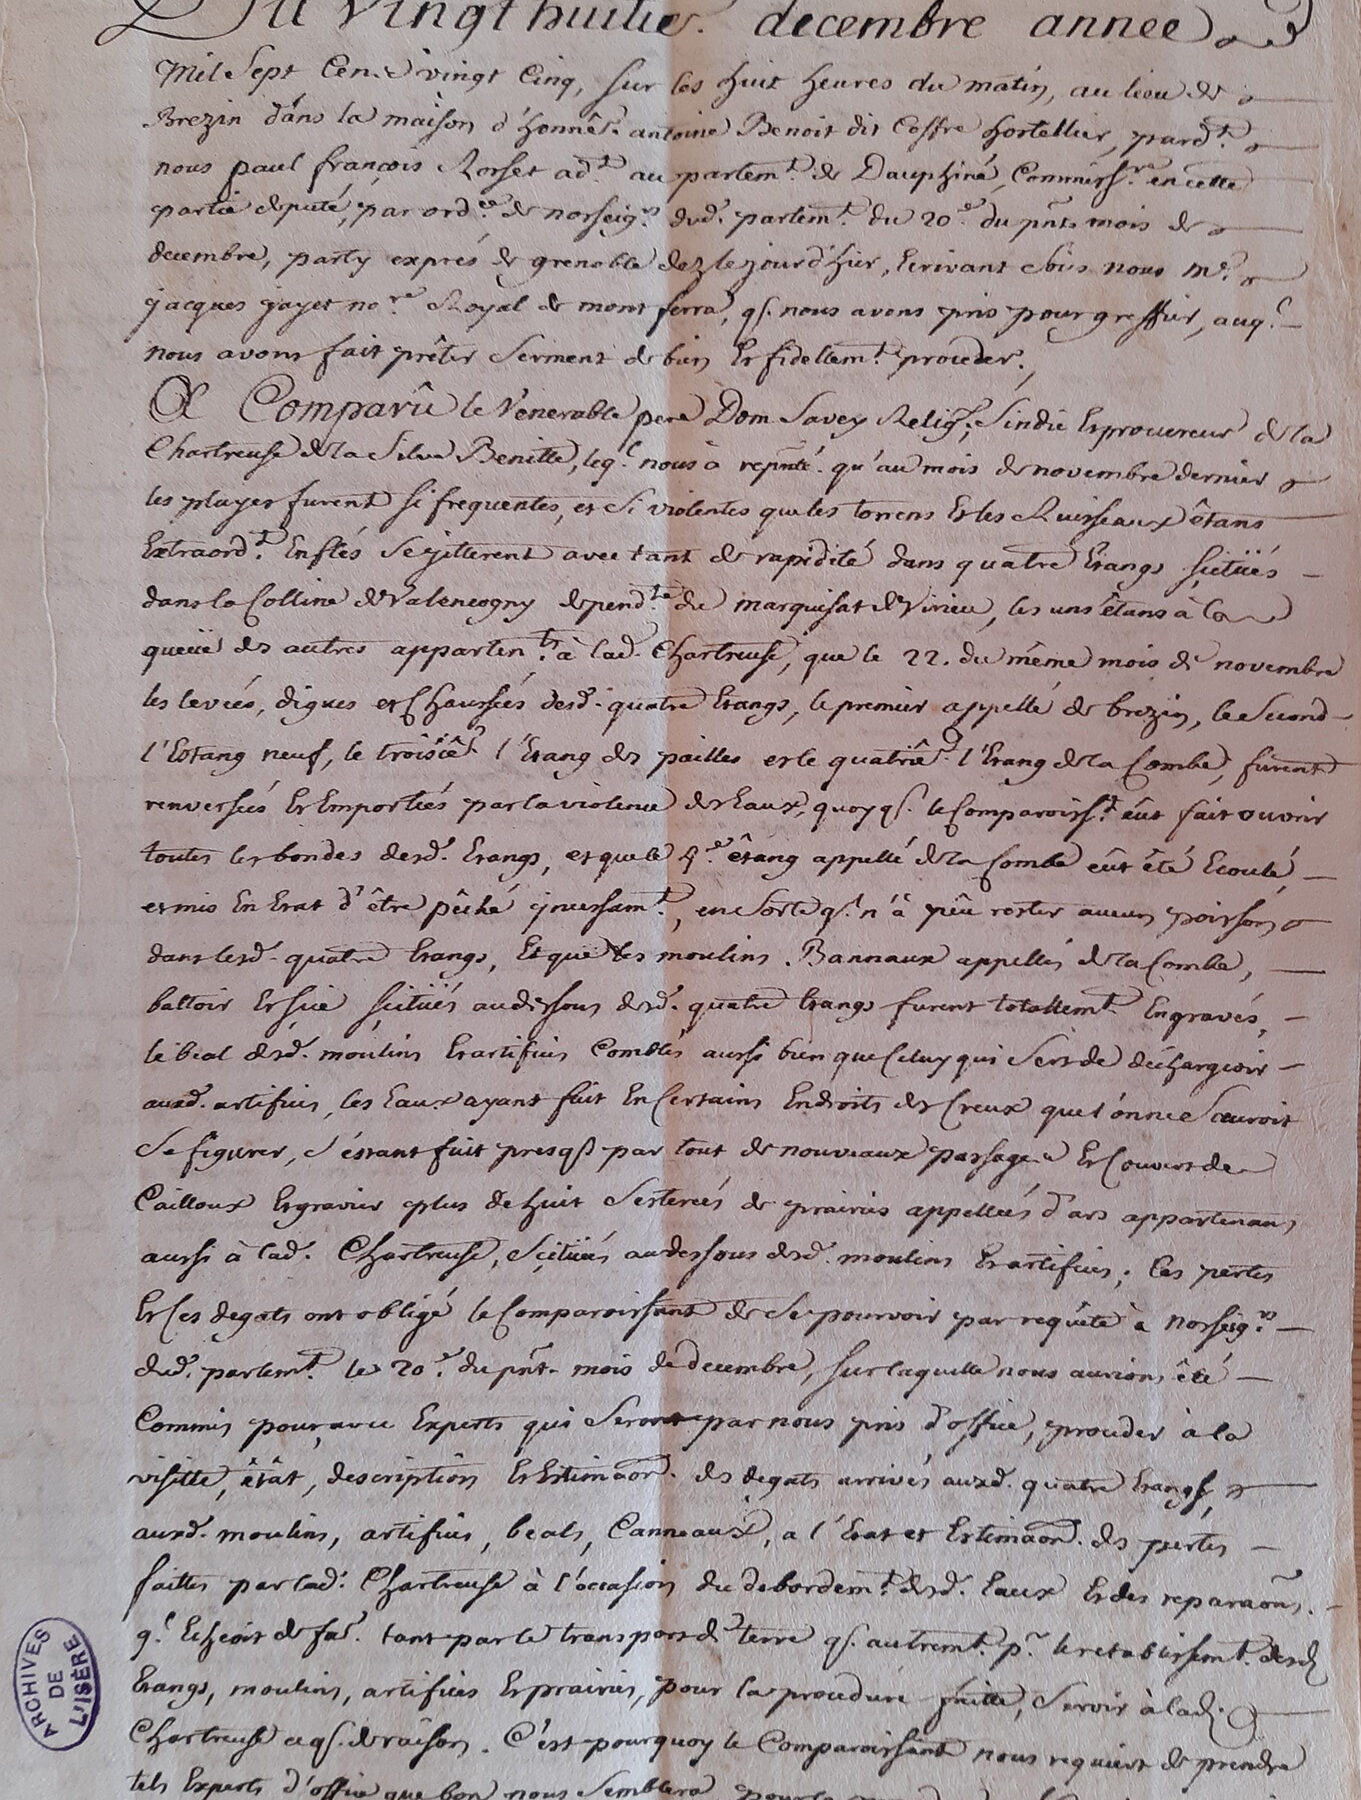 Du vingthuitie. decembre année
Mil Sept Cent vingt Cinq, sur les huit heures du matin, au lieu de
Brezin dans la maison d'honnê. antoine Benoit dit Coffre hortellier, pardt.
nous paul françois Rorset adt. au parlemt. de Dauphiné, Commissre. en cette
partie deputé, par orde. de norseigrs. dud. parlemt. du 20e. du pñt mois de
decembre, party exprés de grenoble dez le jourd'hier, Ecrivant sous nous me.
jacques jayet nore. Royal de montferra, q. nous avons pris pour greffier, auql.
nous avons fait prêter Serment de bien Et fidellemt. proceder.
A Comparû le Venerable pere Dom Savey Religx. Sindic Et procureur de la
Chartreuse de la Silve Benitte, leql. nous à repñté. qu'au mois de novembre dernier
les pluyes furent si frequentes, et si violentes que les torrens Et les Ruisseaux êtans
Extraordt. Enflés Se jitterent avec tant de rapidité dans quatre Etangs scitüés
dans la Colline de Valencogny dependte. du marquisat de Virieu, les uns êtans à la
queüe des autres appartents. à lad. Chartreuse, que le 22. du même mois de novembre
les levées, digues et Chaussées desd. quatre Etangs, le premier appellé de brezin, le Second
l'Estang neuf, le troisiê. l'Etang des pailles et le quatriê. l'Etang de la Combe, furent
renversées Et Emportées par la violence des Eaux, quoyq. le Comparoisst. eût fait ouvrir
toutes les bondes desd. Etangs, et que le 4e. êtang appellé de la Combe eût êté Ecoulé,
et mis En Etat d'être pêché jncessamt., en sorte q. n'à pêu rester aucun poisson
dans lesd. quatre Etangs, Et que les moulins Bannaux appellés de la Combe,
battoir Et scie scitüés au dessous desd. quatre Etangs furent totallemt. Engravés,
le beal desd. moulins Et artifices Comblés aussi bien que Celuy qui Sert de déchargeoir
auxd. artifices, les Eaux ayant fait En Certains Endroits des Creux que l'on ne Sauroit
Se figurer, s'étant fait presq. par tout de nouveaux passages Et Couvert de
Cailloux Et gravier plus de huit Sesterées de prairies appellées d'ars appartenans
aussi à lad. Chartreuse, Scitüées au dessous desd. moulins Et artifices; Ces pertes
Et Ces degats ont obligé le Comparoissant de Se pourvoir par requête à norseigrs.
dud. parlemt. le 20e. du pñt. mois de decembre, sur laquelle nous aurions êté
Commis pour avec Experts qui Seront par nous pris d'office, proceder à la
visitte, êtât, description Et Estimaõn. des degats arrivés auxd. quatre Etangs,
auxd. moulins, artifices, beals, Canneaux, a l'Etat et Estimaõn. des pertes
faittes par lad. Chartreuse à l'occasion du debordemt. desd. Eaux Et des reparaõns.
ql. Echeoit de fae. tant par le transport de terre q. autremt. pr. le retablissemt. desd
Etangs, moulins, artifices Et prairies, pour la procedure faitte, Servir à lad.
Chartreuse ce q. de raison. C'est pourquoy le Comparoissant nous requiert de prendre
tels Experts d'office que bon nous Semblera
ARCHIVES
DE
L'ISÈRE